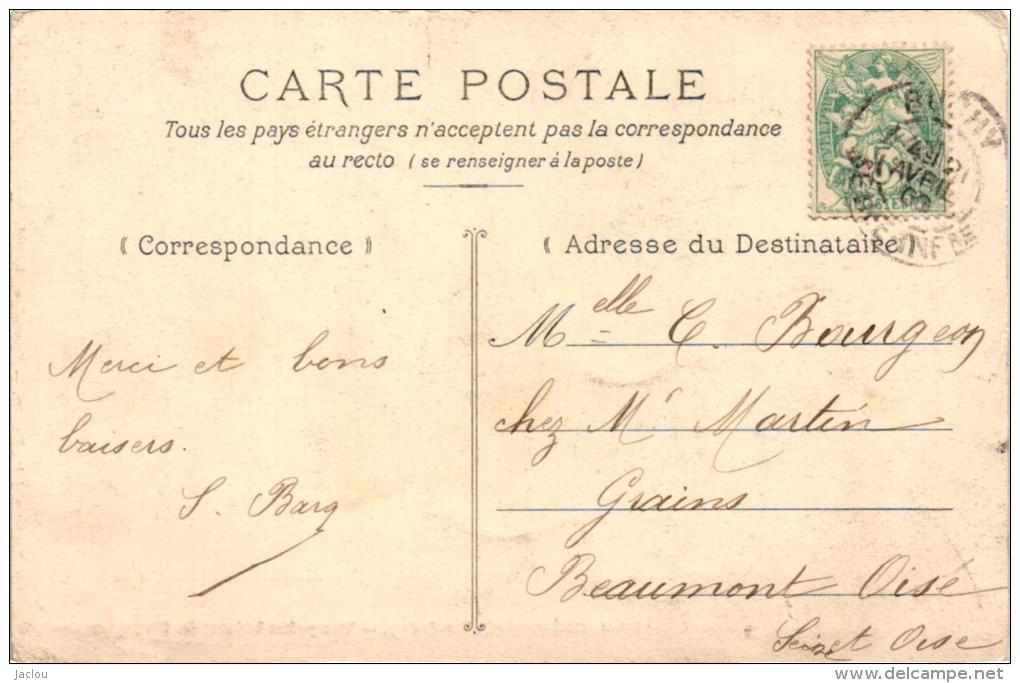 CARTE POSTALE
Tous les pays étrangers n'acceptent pas la correspondance
au recto (se renseigner à la poste)
(Correspondance)
Merci et bons
baisers.
S. Barq
(Adresse du Destinataire)
Melle C. Bourgeon
chez Mr Martin
Grains
Beaumont Oise
Seine et Oise
AVRIL
POSTES
jaclou
www.delcampe.net